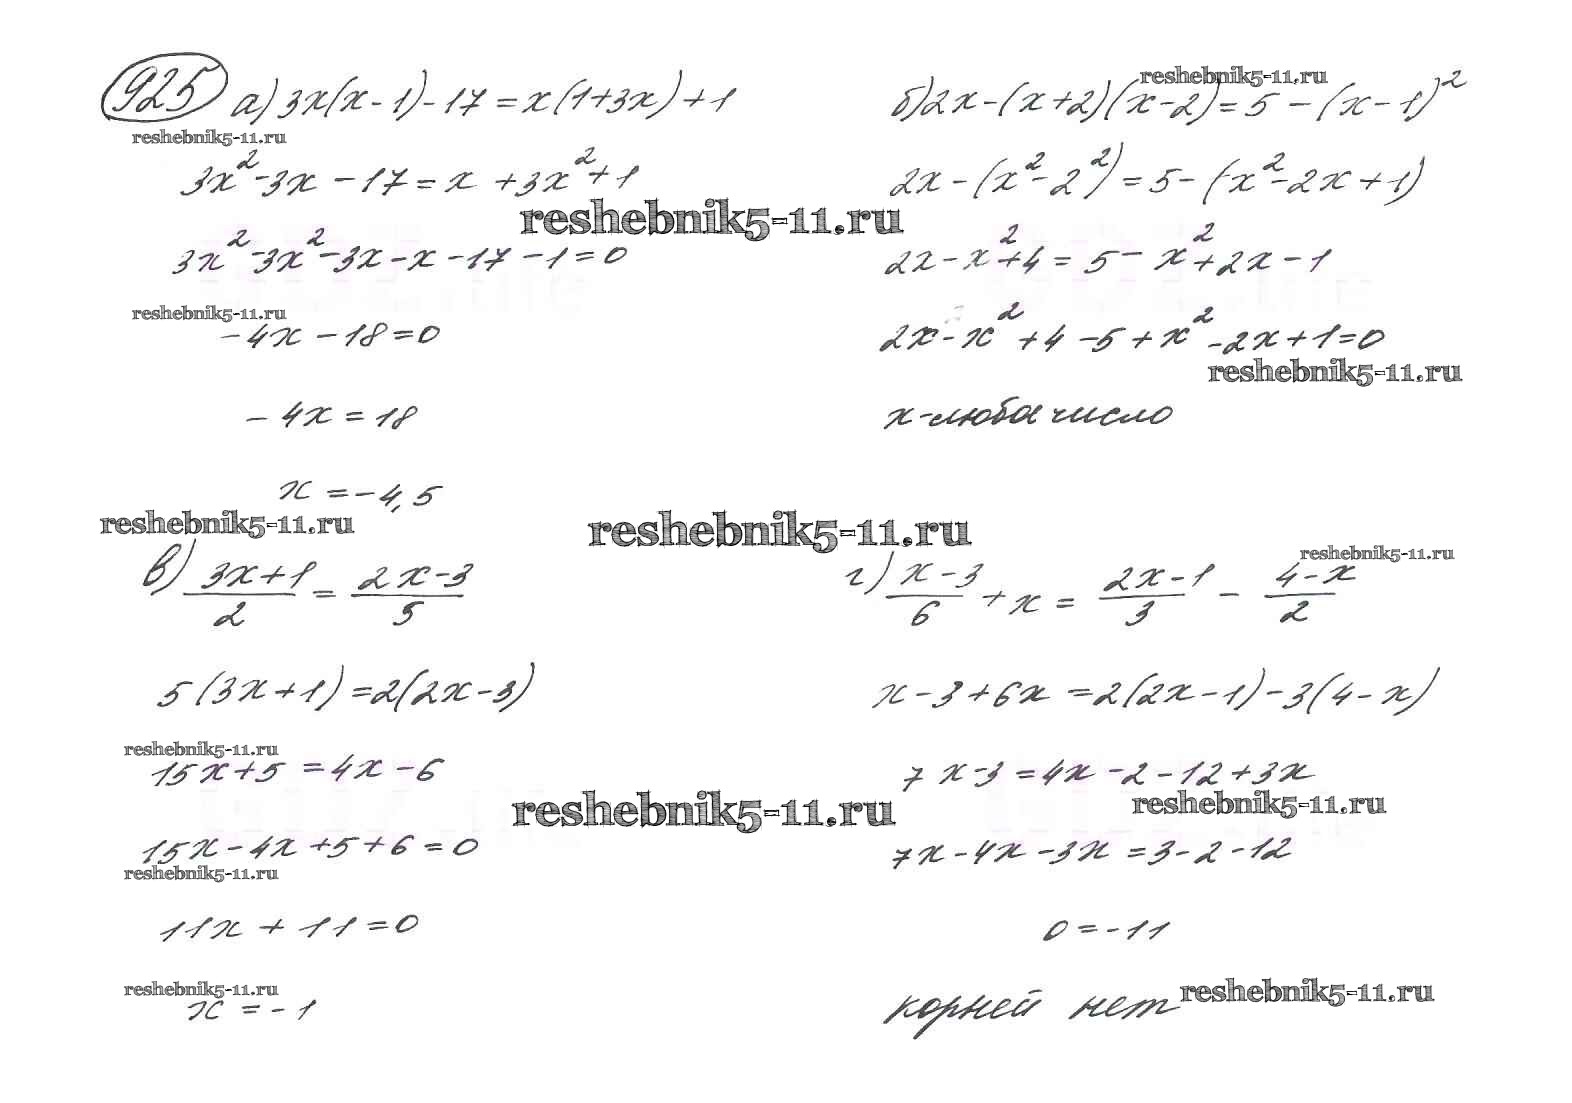 925 а) 3x(x-1)-17=x(1+3x)+1
reshebnik5-11.ru
3x²-3x-17=x+3x²+1
reshebnik5-11.ru
3x²-3x²-3x-x-17-1=0
reshebnik5-11.ru
-4x-18=0
-4x=18
x=-4,5
reshebnik5-11.ru
reshebnik5-11.ru
б) 2x-(x+2)(x-2)=5-(x-1)²
2x-(x²-2²)=5-(x²-2x+1)
2x-x²+4=5-x²+2x-1
2x-x²+4-5+x²-2x+1=0
reshebnik5-11.ru
x-люба число
reshebnik5-11.ru
в) (3x+1)/2=(2x-3)/5
5(3x+1)=2(2x-3)
reshebnik5-11.ru
15x+5=4x-6
reshebnik5-11.ru
15x-4x+5+6=0
reshebnik5-11.ru
11x+11=0
reshebnik5-11.ru
x=-1
reshebnik5-11.ru
г) (x-3)/6+x=(2x-1)/3-(4-x)/2
x-3+6x=2(2x-1)-3(4-x)
7x-3=4x-2-12+3x
reshebnik5-11.ru
7x-4x-3x=3-2-12
0=-11
корней нет
reshebnik5-11.ru